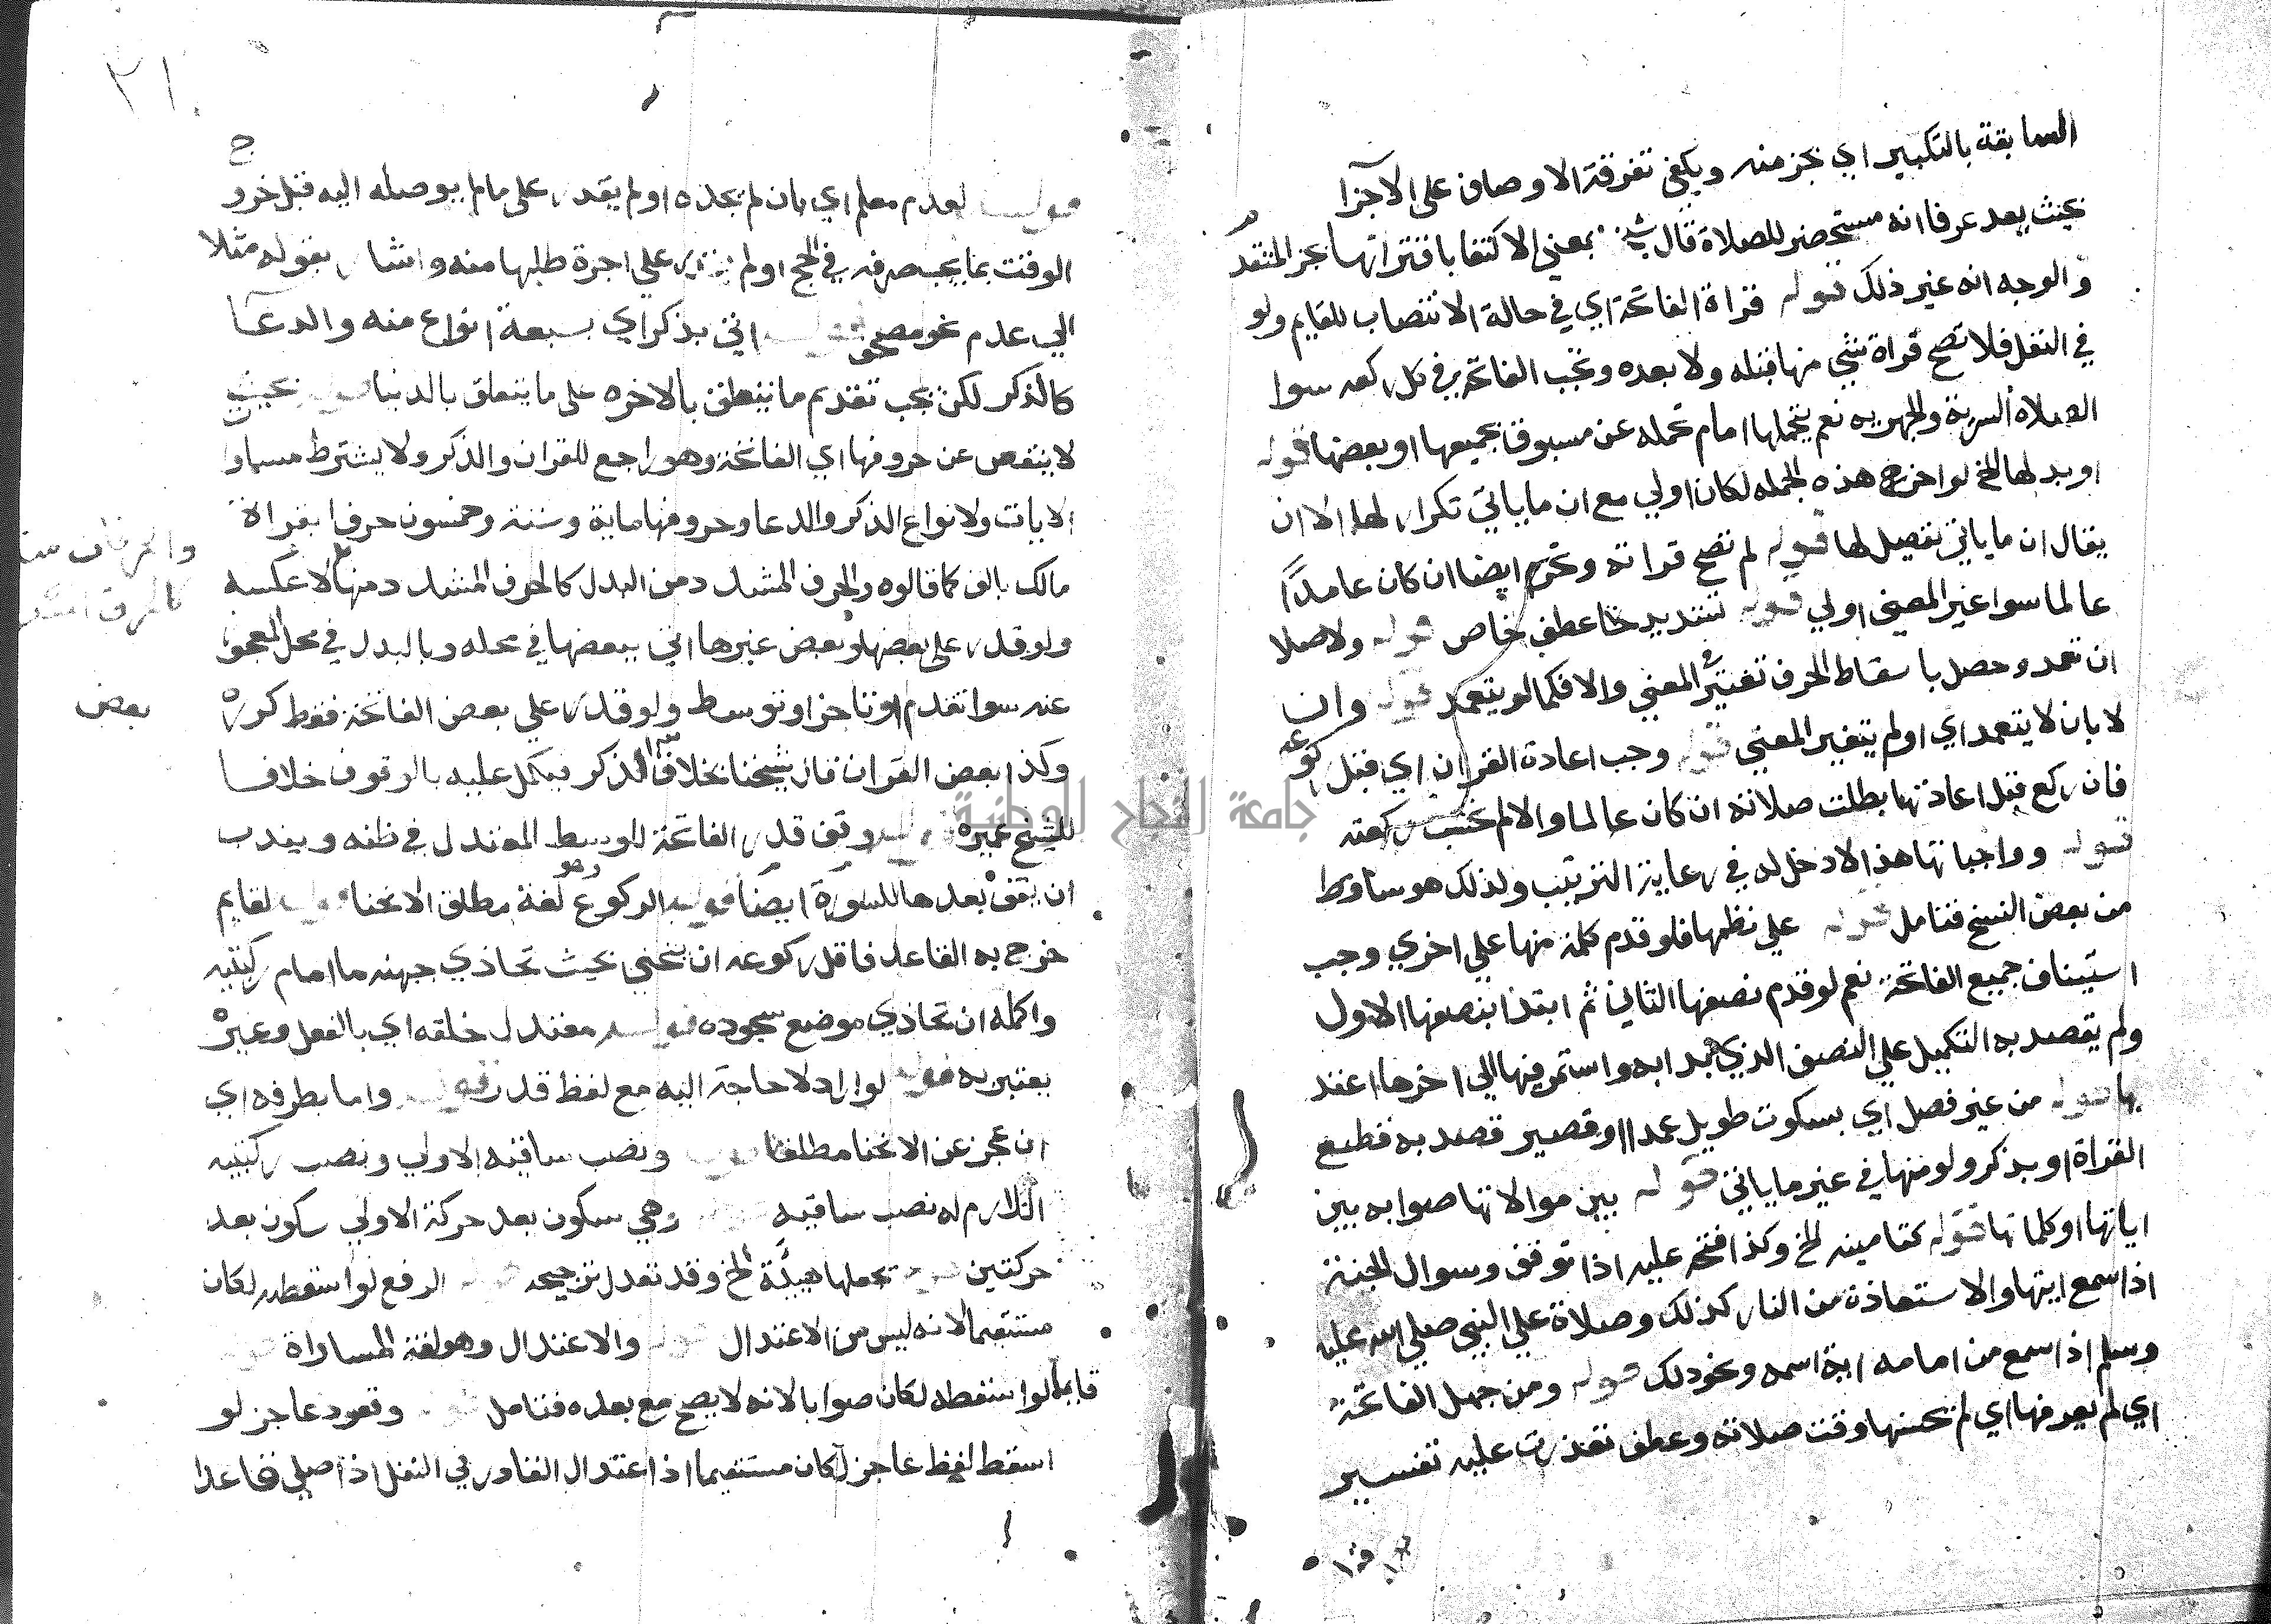 السابقة بالتكبير اي بجز منه ويكفي تفرقة الاوصاف علي الاجزا
بحيث يعد عرفا انه مستحضر للصلاة قال بمعني الاكتفا باقترانها بجز المتقد
والوجه انه غير ذلك قوله قراة الفاتحة اي في حالة الانتصاب للقايم ولو
في النفل فلا تصح قراة شي منها قبله ولا بعده وتجب الفاتحة في كل ركعه سوا
الصلاه السرية والجهريه نعم يتحملها امام تحمله عن مسبوق جميعها او بعضها قوله
او بدلها الخ لو اخرج هذه الجمله لكان اولي مع ان ما ياتي تكرار لها الا ان
يقال ان ما ياتي تفصيل لها قوله لم تصح قراته وتحرم ايضا ان كان عامدا
عالما سوا غير المعني او لي قوله تشديد خا عطف خاص قوله ولا صلا
ان تعمد وحصل باسقاط الحرف تغيير المعني والا فكما لو يتعمد قوله وان
لا بان لا يتعمد اي او لم يتغير المعني قوله وجب اعادة القران اي قبل ركوعه
فان ركع قبل اعادتها بطلت صلاته ان كان عالما والا لم تحسب ركعته
قوله وواجباتها هذا لا دخل له في رعاية الترتيب ولذلك هو ساقط
من بعض النسخ فتامل قوله علي نظمها فلو قدم كلمة منها علي اخري وجب
استيناف جميع الفاتحة نعم لو قدم نصفها الثاني ثم ابتدا بنصفها الاول
ولم يقصد به التكميل علي النصف الذي بدا به واستمر فيها الي اخرها اعتد
بها قوله من غير فصل اي بسكوت طويل عمدا او قصير قصد به قطع
القراة او بذكر ولو منها في غير ما ياتي قوله بين موالاتها صوابه بين
اياتها او كلماتها قوله كتامينه الخ وكذا فتحه عليه اذا توقف وسوال الجنة
اذا سمع ايتها والاستعاذة من النار كذلك وصلاة علي النبي صلي الله عليه
وسلم اذا سمع من امامه اية اسمه ونحو ذلك قوله ومن جهل الفاتحة
اي لم يعرفها اي لم يحسنها وقت صلاته وعطف تعذرت عليه تفسير
٢١
قوله لعدم معلم اي بان لم يجده او لم يقدر علي ما لم يوصله اليه قبل خرو
ج
الوقت بما يجب صرفه في الحج او لم يقدر علي اجرة طلبها منه واشار بقوله مثلا
الي عدم نحو مصحف قوله اتي بذكر اي بسبعة انواع منه والدعا
كالذكر لكن يجب تقديم ما يتعلق بالاخره علي ما يتعلق بالدنيا قوله بحيث
لا ينقص عن حروفها اي الفاتحة وهو راجع للقران والذكر ولا يشترط مساوا
الايات ولا نواع الذكر والدعا وحروفها ماية وستة وخمسون حرفا بقراة
مالك بالف كما قالوه والحرف المشدد من البدل كالحرف المشدد منها لا عكسه
ولو قدر علي بعضها وبعض غيرها اتي ببعضها في محله وبالبدل في محل المعجوز
عنه سوا تقدم او تاخر او توسط ولو قدر علي بعض الفاتحة فقط كرره
بعض
وكذا بعض القران قال شيخنا بخلاف الذكر يكمل عليه بالوقوف خلافا
للشيخ عميره قوله وقف قدر الفاتحة للوسط المعتدل في ظنه ويندب
ان يقف بعدها للسورة ايضا قوله الركوع وهو لغة مطلق الانحنا قوله لقايم
خرج به القاعد فاقل ركوعه ان ينحني بحيث تحاذي جبهته ما امام ركبتيه
واكمله ان تحاذي موضع سجوده قوله معتدل خلقه اي بالفعل وغيره
يعتبر به قوله لو اراد لا حاجة اليه مع لفظ قدر قوله واما بطرفه اي
ان عجز عن الانحنا مطلقا قوله ونصب ساقيه الاولي ونصب ركبتيه
اللازم له نصب ساقيه قوله وهي سكون بعد حركة الاولي سكون بعد
حركتين قوله تجعلها هيئة الخ وقد تعدل ترجيحه قوله الرفع لو اسقطه لكان
مستقيما لانه ليس من الاعتدال قوله والاعتدال وهو لغة المساواة قوله
قايما لو اسقطه لكان صوابا لانه لا يصح مع بعده فتامل قوله وقعود عاجز لو
اسقط لفظ عاجز لكان مستقيما اذ اعتدال القادر في النفل اذا صلي قاعدا
جامعة النجاح الوطنية